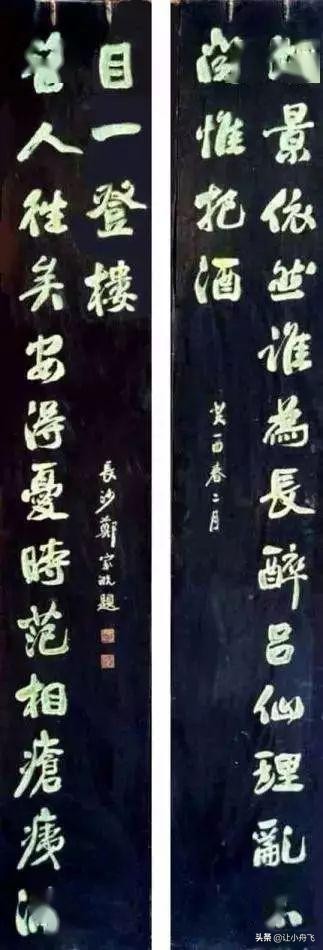 景依然誰為長醉呂仙理亂
聞惟把酒
癸酉春二月
昔人徃矣安得憂時范相瘡痍
目一登樓
長沙鄭家溉題
头条 @让小舟飞